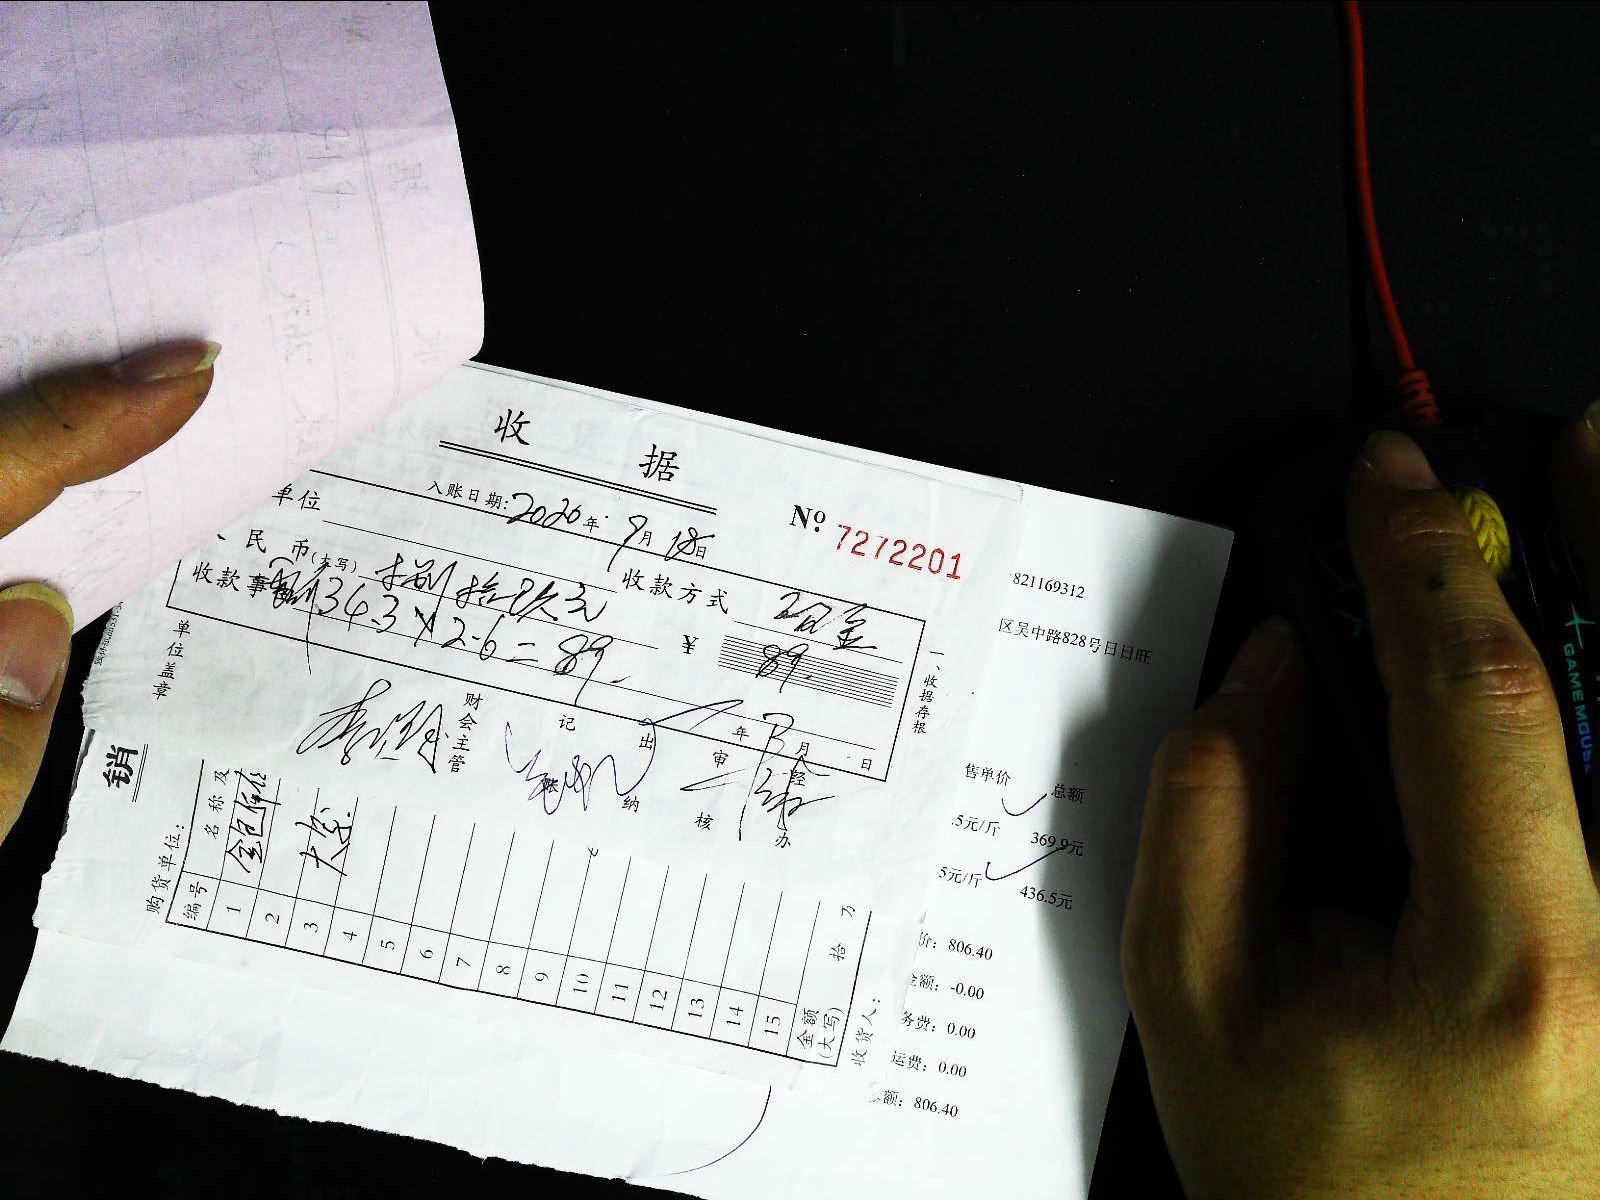 收 据
入账日期: 2020年 9月 18日
№ 7272201
单位
民 币(大写) 捌拾玖元 收款方式 现金
收款事 34.3×2.6=89. ¥ 89.
年 月 日
一、收据存根
单位盖章
财会主管
记账
出纳
审核
经办
销
购货单位：
编号 名称及
1
2
3 大葱
4
5
6
7
8
9
10
11
12
13
14
15
金额(大写) 拾 万
收货人：
821169312
区吴中路828号日日旺
售单价 总额
.5元/斤 369.9元
5元/斤 436.5元
价: 806.40
金额: -0.00
务费: 0.00
运费: 0.00
额: 806.40
GAME MOUSE